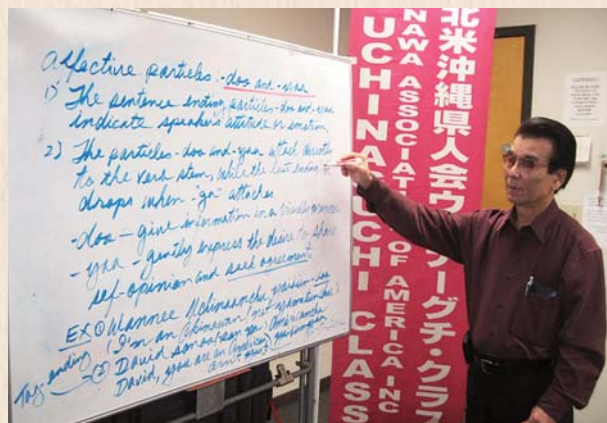 affective particles -doo and -yaa
1) The sentence ending particles -doo and -yaa
indicate speakers attitude or emotion,
2) The particles -doo and -yaa attach directly
to the verb stem, while the last ending
drops when "ya" attaches
-doo = give information in a friendly manner
-yaa - gently express the desire to share
self-opinion and seek agreement.
EX ① Wannee Uchinaanchu
I'm an Okinawan (not
② David American
David, you are an American, aren't you?
Tag ending
北米沖縄県人会ウ ーグチ・クラス
NAWA ASSOCIAT OF AMERICA INC
UCHINAGUCHI CLASS